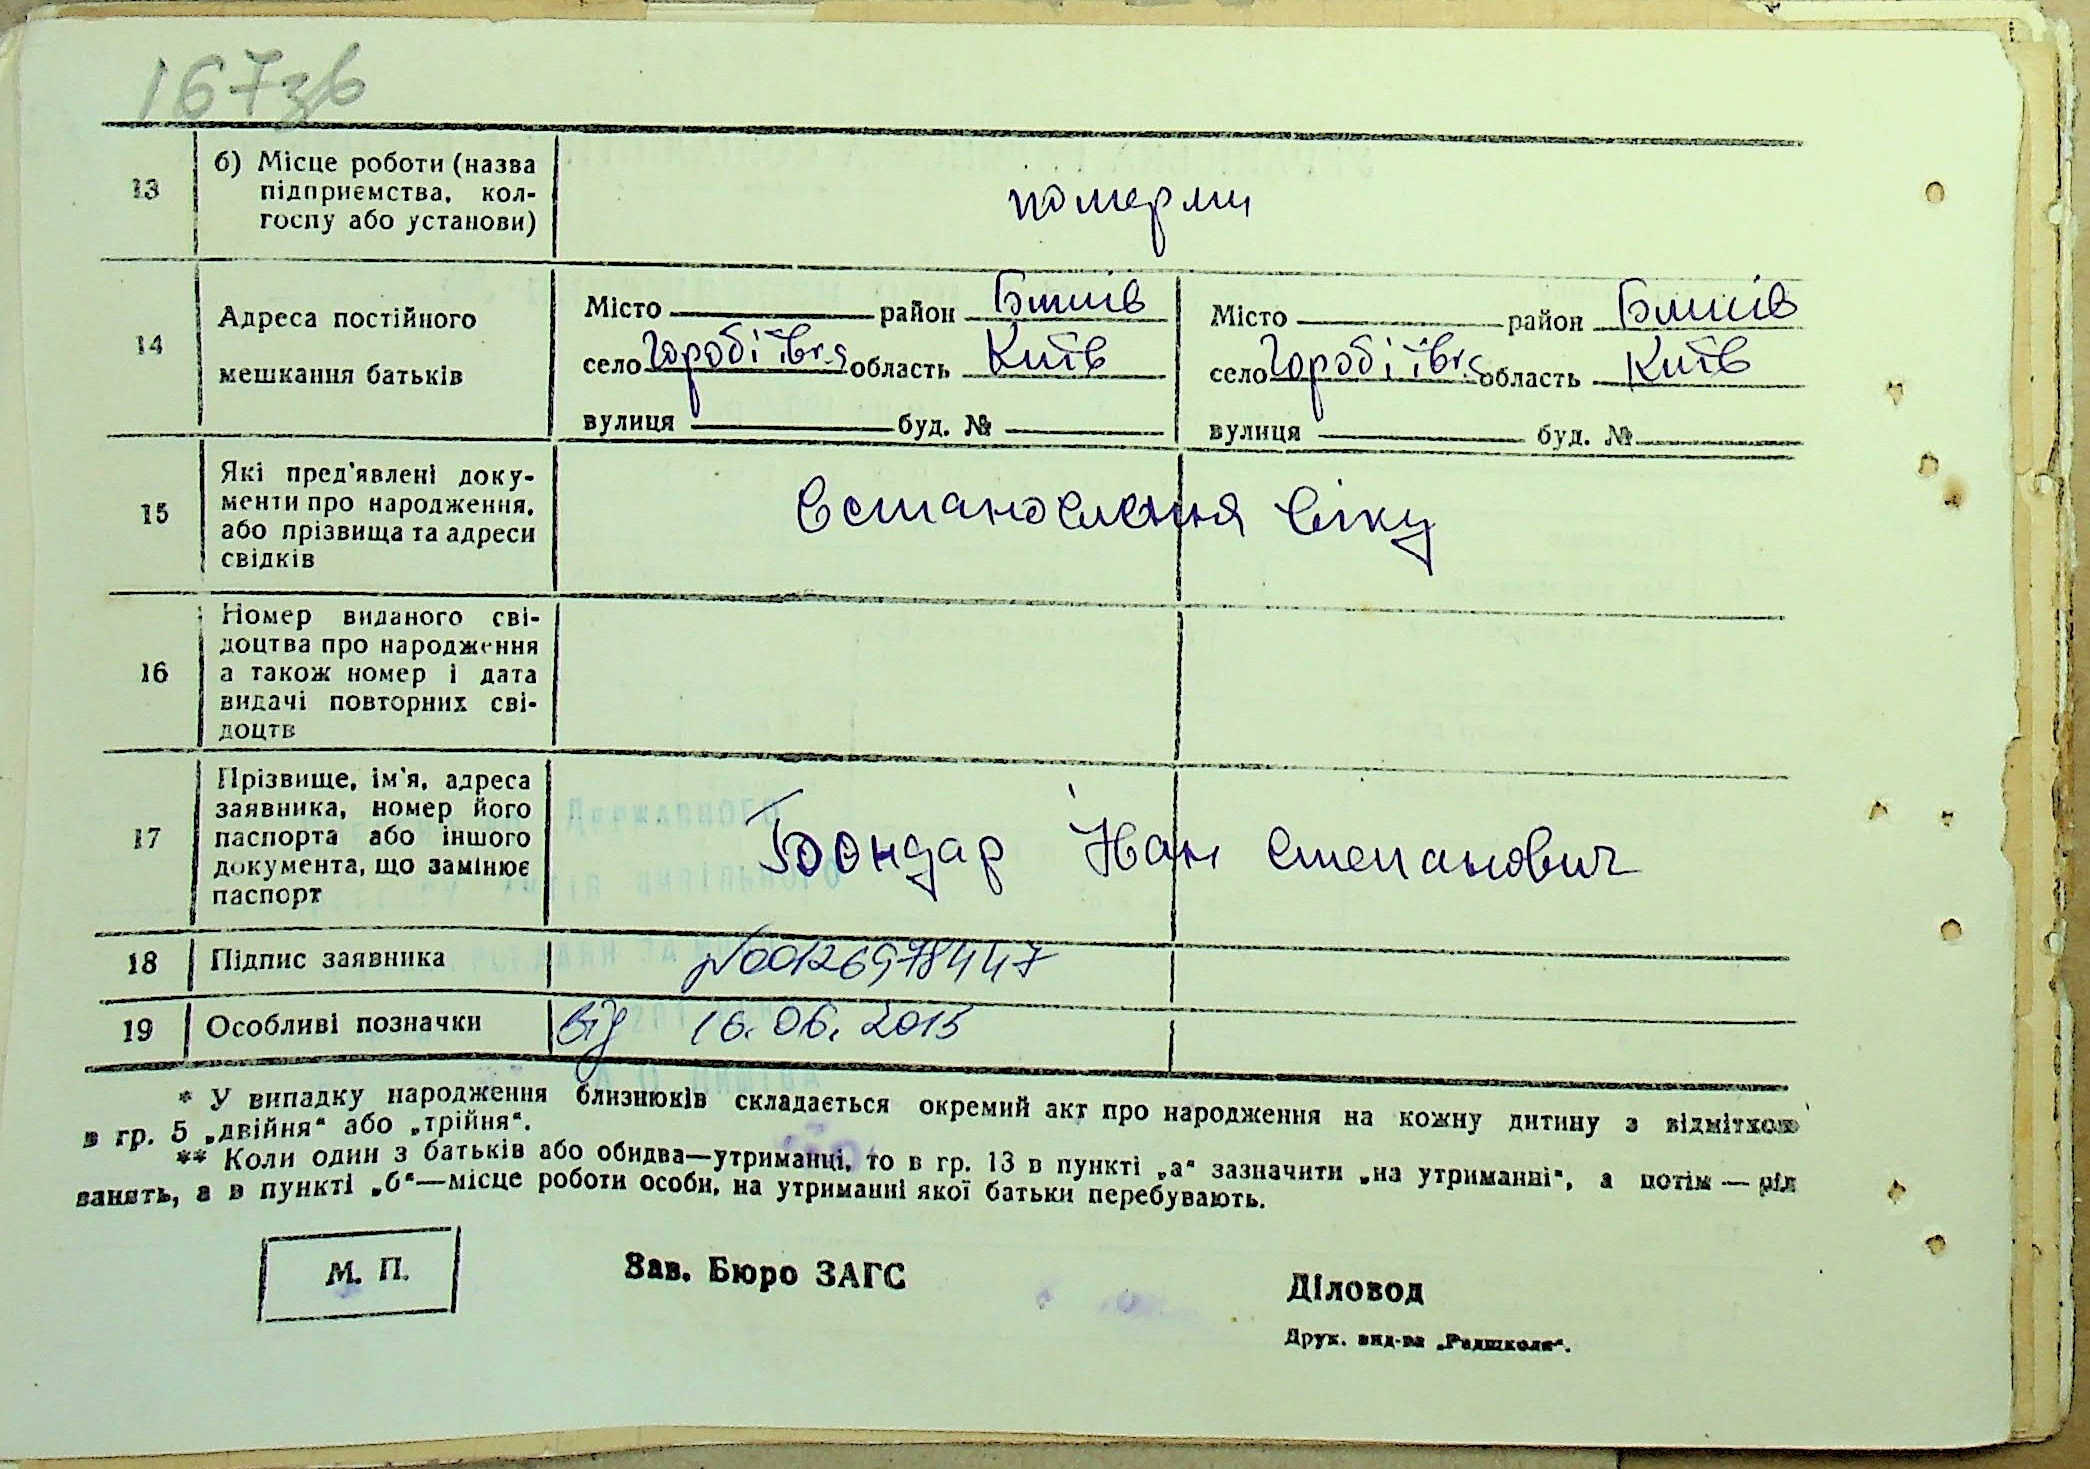 167зв
13
б) Місце роботи (назва
підприємства, кол-
госпу або установи)
померли
14
Адреса постійного
мешкання батьків
Місто район Бишів
село Горобіївка область Київ
вулиця буд. №
Місто район Бишів
село Горобіївка область Київ
вулиця буд. №
15
Які пред'явлені доку-
менти про народження,
або прізвища та адреси
свідків
Встановлення віку
16
Номер виданого сві-
доцтва про народження
а також номер і дата
видачі повторних сві-
доцтв
17
Прізвище, ім'я, адреса
заявника, номер його
паспорта або іншого
документа, що замінює
паспорт
Бондар Іван Степанович
18
Підпис заявника
№00126978447
19
Особливі позначки
від 16.06.2015
* У випадку народження близнюків складається окремий акт про народження на кожну дитину з відміткою
в гр. 5 „двійня“ або „трійня“.
** Коли один з батьків або обидва—утриманці, то в гр. 13 в пункті „а“ зазначити „на утриманні“, а потім — рід
занять, а в пункті „б“—місце роботи особи, на утриманні якої батьки перебувають.
М. П.
Зав. Бюро ЗАГС
Діловод
Друк. вид-ва „Радшкола“.